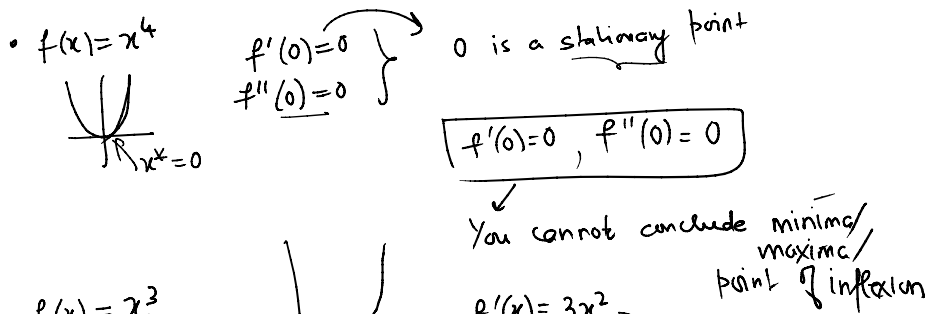 • f(x) = x⁴
f'(0) = 0
f''(0) = 0
0 is a stationary point
x* = 0
f'(0) = 0 , f''(0) = 0
You cannot conclude minima/
maxima/
point of inflexion
f(x) = x³
f'(x) = 3x²